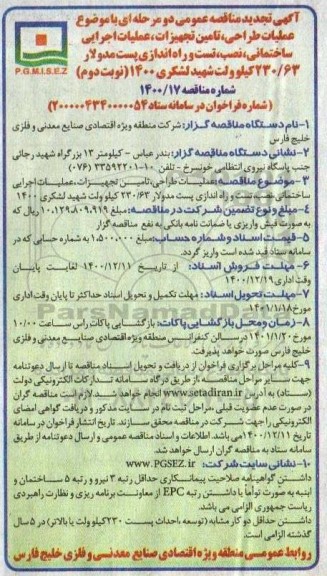 آگهی تجدید مناقصه عمومی دو مرحله ای با موضوع
عملیات طراحی، تامین تجهیزات، عملیات اجرایی
ساختمانی، نصب، تست و راه اندازی پست مدولار
۲۳۰/۶۳ کیلو ولت شهید لشکری ۱۴۰۰ (نوبت دوم)
P.G.M.I.S.E.Z
شماره مناقصه ۱۴۰۰/۱۷
(شماره فراخوان در سامانه ستاد ۲۰۰۰۰۰۴۳۴۰۰۰۰۰۵۴)
۱- نام دستگاه مناقصه گزار: شرکت منطقه ویژه اقتصادی صنایع معدنی و فلزی
خلیج فارس
۲- نشانی دستگاه مناقصه گزار: بندر عباس - کیلومتر ۱۳ بزرگراه شهید رجائی
جنب پاسگاه نیروی انتظامی خونسرخ - تلفن ۱۰-۳۳۵۹۲۲۰۱ (۰۷۶)
۳- موضوع مناقصه: عملیات طراحی، تامین تجهیزات، عملیات اجرایی
ساختمانی، نصب، تست و راه اندازی پست مدولار ۲۳۰/۶۳ کیلو ولت شهید لشکری ۱۴۰۰
۴- مبلغ ونوع تضمین شرکت در مناقصه: مبلغ ۱۰،۱۲۹،۸۰۹،۹۱۹ ریال که
به صورت فیش واریزی یا ضمانت نامه بانکی به نفع مناقصه گزار
۵- قیمت اسناد و شماره حساب: مبلغ ۱،۵۰۰،۰۰۰ به شماره حسابی که در
سامانه ستاد قید شده است واریز گردد.
۶- مهلت فروش اسناد: از تاریخ ۱۴۰۰/۱۲/۱۱ لغایت پایان
وقت اداری ۱۴۰۰/۱۲/۱۹
۷- مهلت تحویل اسناد: مهلت تکمیل و تحویل اسناد حداکثر تا پایان وقت اداری
مورخ ۱۴۰۱/۱/۱۸
۸- زمان و محل بازگشایی پاکات: بازگشایی پاکات راس ساعت ۱۰/۰۰
مورخ ۱۴۰۱/۱/۲۰ در سالن کنفرانس منطقه ویژه اقتصادی صنایع معدنی و فلزی
خلیج فارس صورت خواهد پذیرفت.
۹- کلیه مراحل برگزاری فراخوان از دریافت و تحویل اسناد مناقصه تا ارسال دعوتنامه
جهت سایر مراحل مناقصه از طریق درگاه سامانه تدارکات الکترونیکی دولت
(ستاد) به آدرس www.setadiran.ir انجام خواهد شد. لازم است مناقصه گران
در صورت عدم عضویت قبلی، مراحل ثبت نام در سایت مذکور و دریافت گواهی امضای
الکترونیکی را جهت شرکت در مناقصه محقق سازند. تاریخ انتشار فراخوان در سامانه
تاریخ ۱۴۰۰/۱۲/۱۱ می باشد. اطلاعات و اسناد مناقصه عمومی و ارسال دعوتنامه از طریق
سامانه ستاد به مناقصه گران ارسال خواهد شد.
۱۰- نشانی سایت شرکت: www.PGSEZ.ir
داشتن گواهینامه صلاحیت پیمانکاری حداقل رتبه ۳ نیرو و رتبه ۵ ساختمان و
ابنیه به صورت توأما یا داشتن رتبه EPC از معاونت برنامه ریزی و نظارت راهبردی
ریاست جمهوری الزامی می باشد.
داشتن حداقل دو کار مشابه (توسعه، احداث پست ۲۳۰ کیلو ولت یا بالاتر) در ۵ سال
گذشته الزامی است.
روابط عمومی منطقه ویژه اقتصادی صنایع معدنی و فلزی خلیج فارس